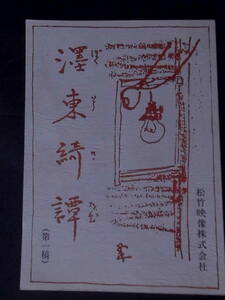 松竹映像株式会社
濹東綺譚
(第一稿)